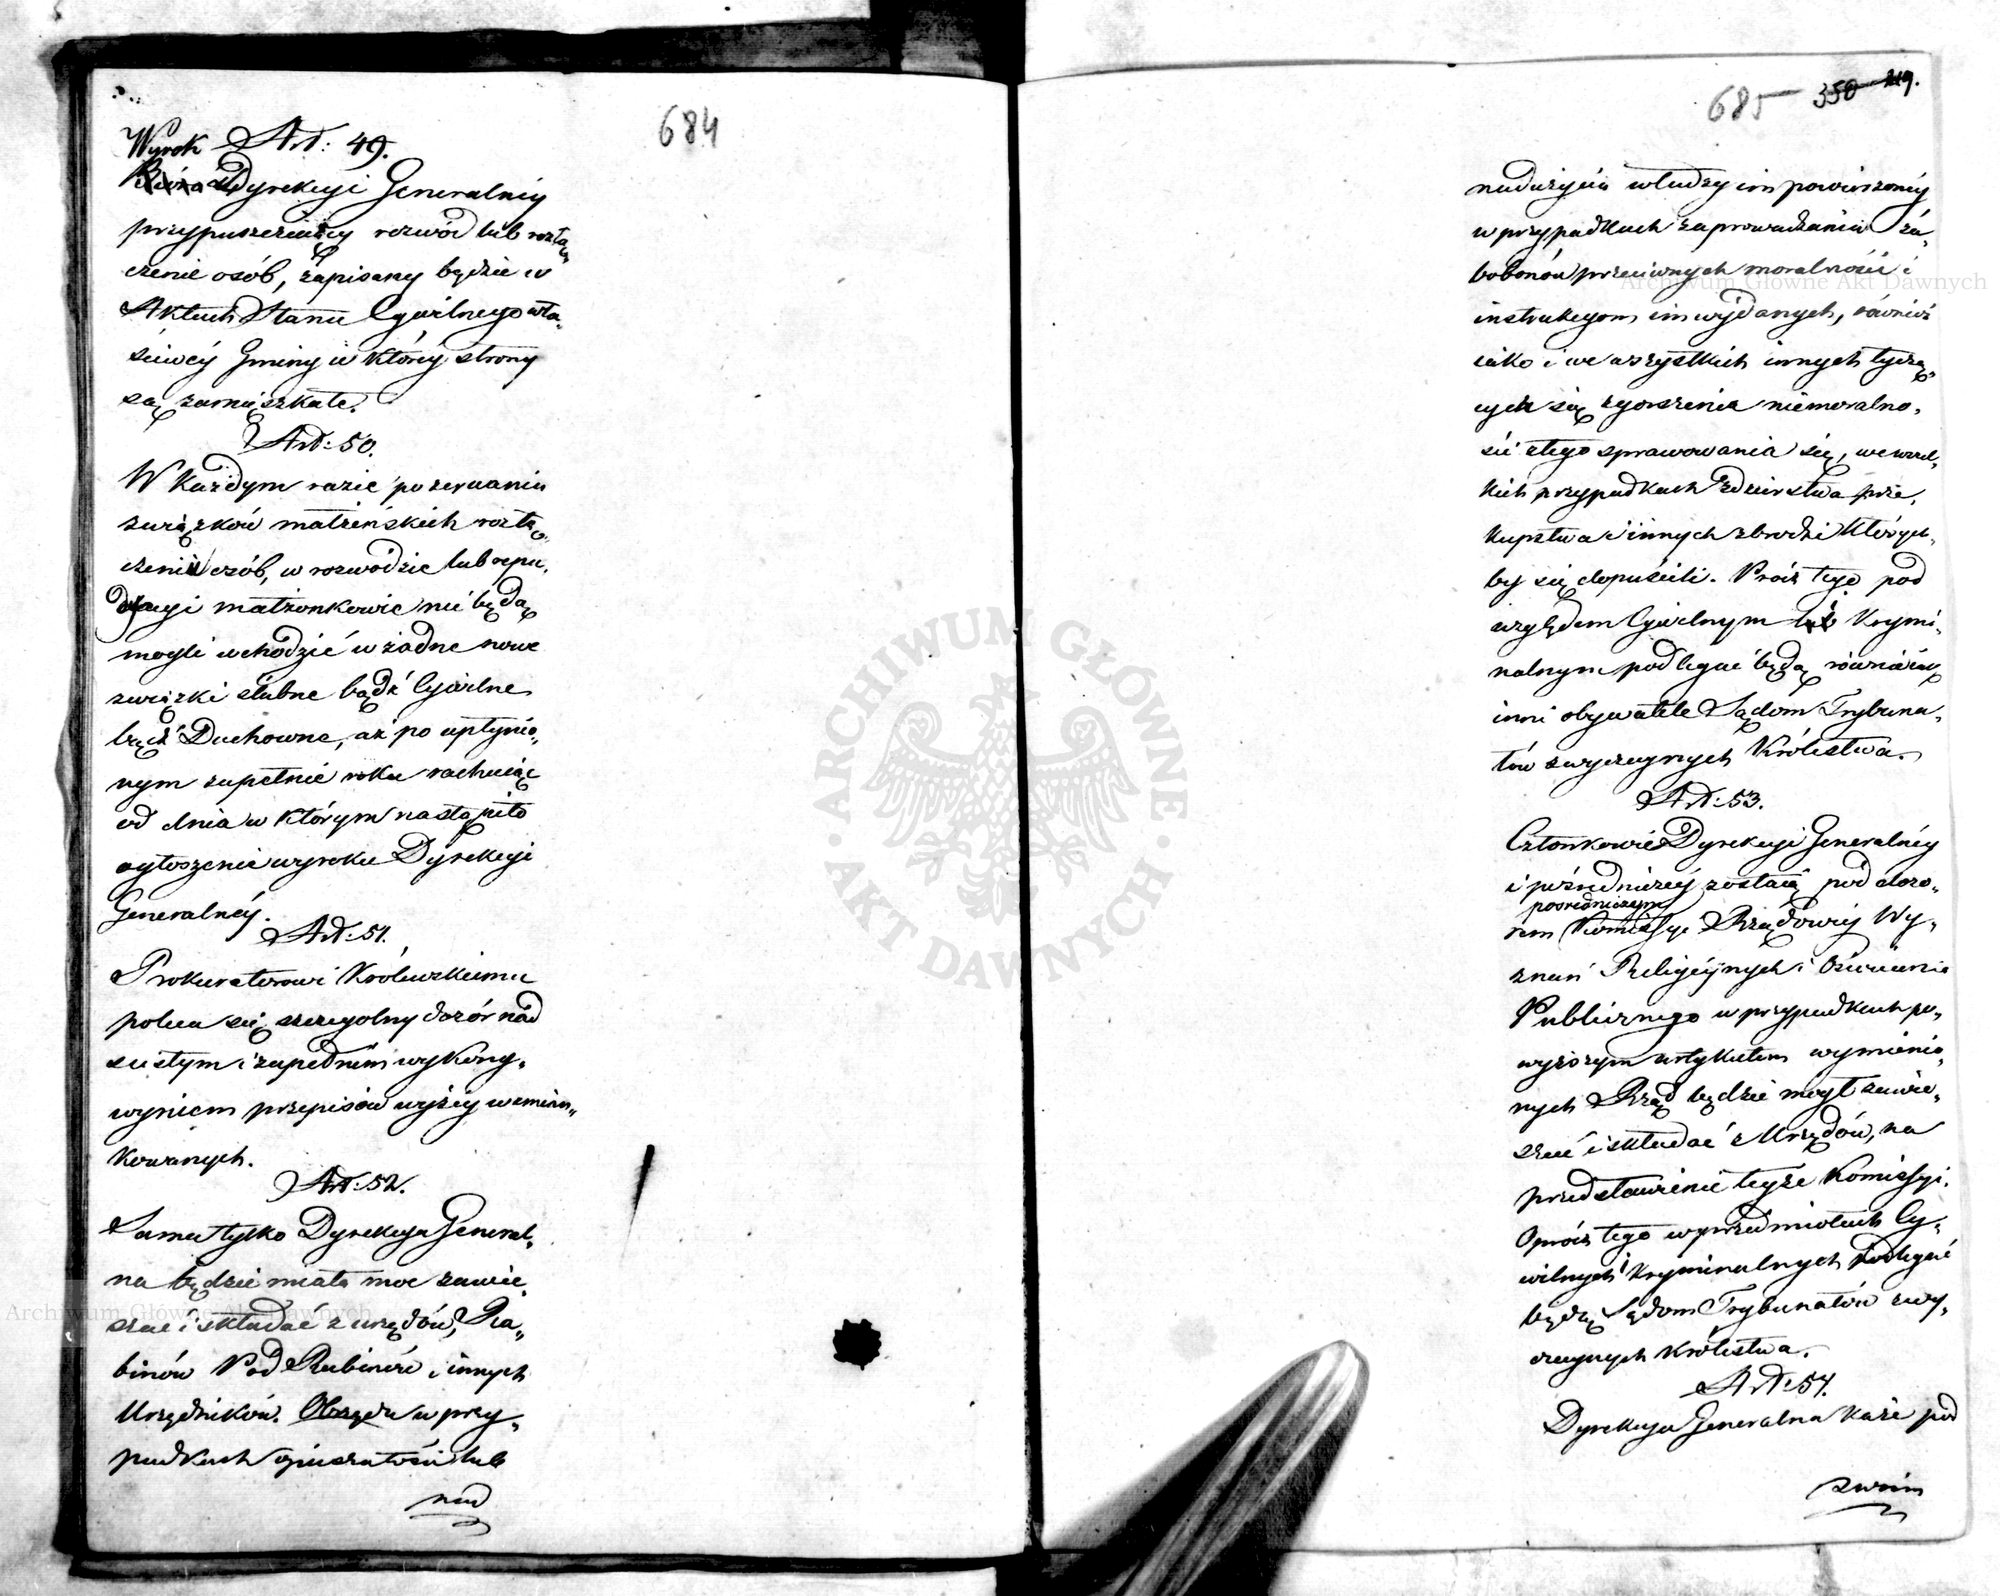 684
Wyrok Art: 49.
Dyrekcyi Generalnéy
przypuszczaiący rozwód lub rozłą„
czenie osób, zapisany będzie w
Aktach Stanu Cywilnego wła„
ściwéy Gminy w któréy strony
są zamięszkałe.
Art: 50.
W każdym razie po zerwaniu
związków małżeńskich rozłą„
czeniu osób, w rozwodzie lub repu„
dyacyi małżonkowie nie będą
mogli wchodzić w żadne nowe
związki ślubne bądź Cywilne
bądź Duchowne, aż po upłynio„
nym zupełnie roku rachuiąc
od dnia w którym nastąpiło
ogłoszenie wyroku Dyrekcyi
Generalnéy.
Art: 51.
Prokuratorowi Królewskiemu
poleca się szczegolny dozór nad
scisłym i zupełnem wykony„
wyniem przepisów wyżéy wemian„
kowanych.
Art: 52.
Sama tylko Dyrekcya General„
na będzie miała moc zawie„
szać i składać z urzędów, Ra„
binów Pod Rabinów i innych
Urzędników. Obrzędu w przy„
padkach opieszałości lub
nad
685 350 219.
nadużycia władzy im powierzonéy
w przypadkach zaprowadzania za„
bobonów przeciwnych moralności i
instrukcyom im wydanych, również
iako i we wszystkich innych tyczą„
cych się zgorszenia niemoralno„
ści złego sprawowania się, we wszel„
kich przypadkach zdzierstwa prze„
kupstwa i innych zbrodni których„
by się dopuścili. Prócz tego pod
względem Cywilnym i Krymi„
nalnym podlegać będą równie iak
inni obywatele Sądom Trybuna„
łów zwyczaynych Królestwa.
Art: 53.
Członkowie Dyrekcyi Generalnéy
i pośredniczéy zostaią pod dozo„
pośredniczym
rem Kommissyi Rządowéy Wy„
znań Religiynych i Oświecenia
Publicznego w przypadkach po„
wyższym artykułem wymienio„
nych Rząd będzie mógł zawie„
szać i składać z Urzędów, na
przedstawienie teyże Kommissyi.
Oprócz tego w przedmiotach Cy„
wilnych i Kryminalnych podlegać
będą Sądom Trybunałów zwy„
czaynych Królestwa.
Art: 54.
Dyrekcya Generalna każe pod
swoim
ARCHIWUM GŁÓWNE AKT DAWNYCH
Archiwum Główne Akt Dawnych
Archiwum Główne Akt Dawnych